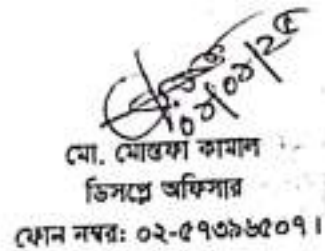 ০১/০১/২৫
মো. মোস্তফা কামাল
ডিসপ্লে অফিসার
ফোন নম্বর: ০২-৫৭৩৯৬৫০৭।